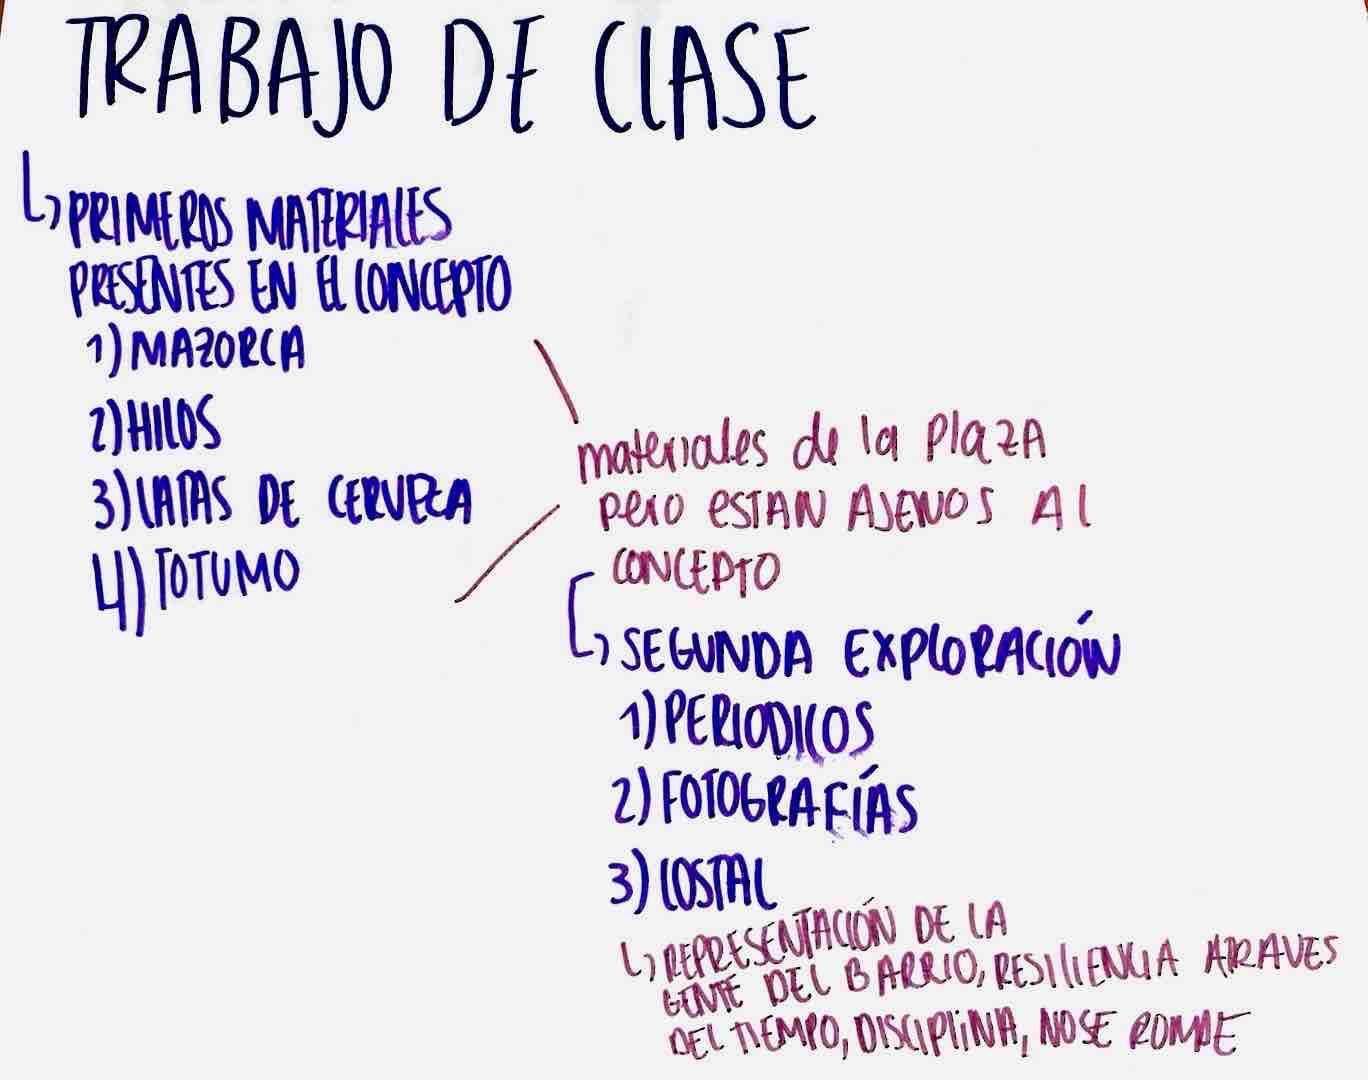 TRABAJO DE CLASE
PRIMEROS MATERIALES
PRESENTES EN EL CONCEPTO
1) MAZORCA
2) HILOS
3) LATAS DE CERVEZA
4) TOTUMO
materiales de la PlAZA
pero ESTAN AJENOS Al
CONCEPTO
SEGUNDA EXPLORACIÓN
1) PERIODICOS
2) FOTOGRAFÍAS
3) COSTAL
REPRESENTACIÓN DE LA
GENTE DEL BARRIO, RESILIENCIA ATRAVES
DEL TIEMPO, DISCIPLINA, NO SE ROMPE